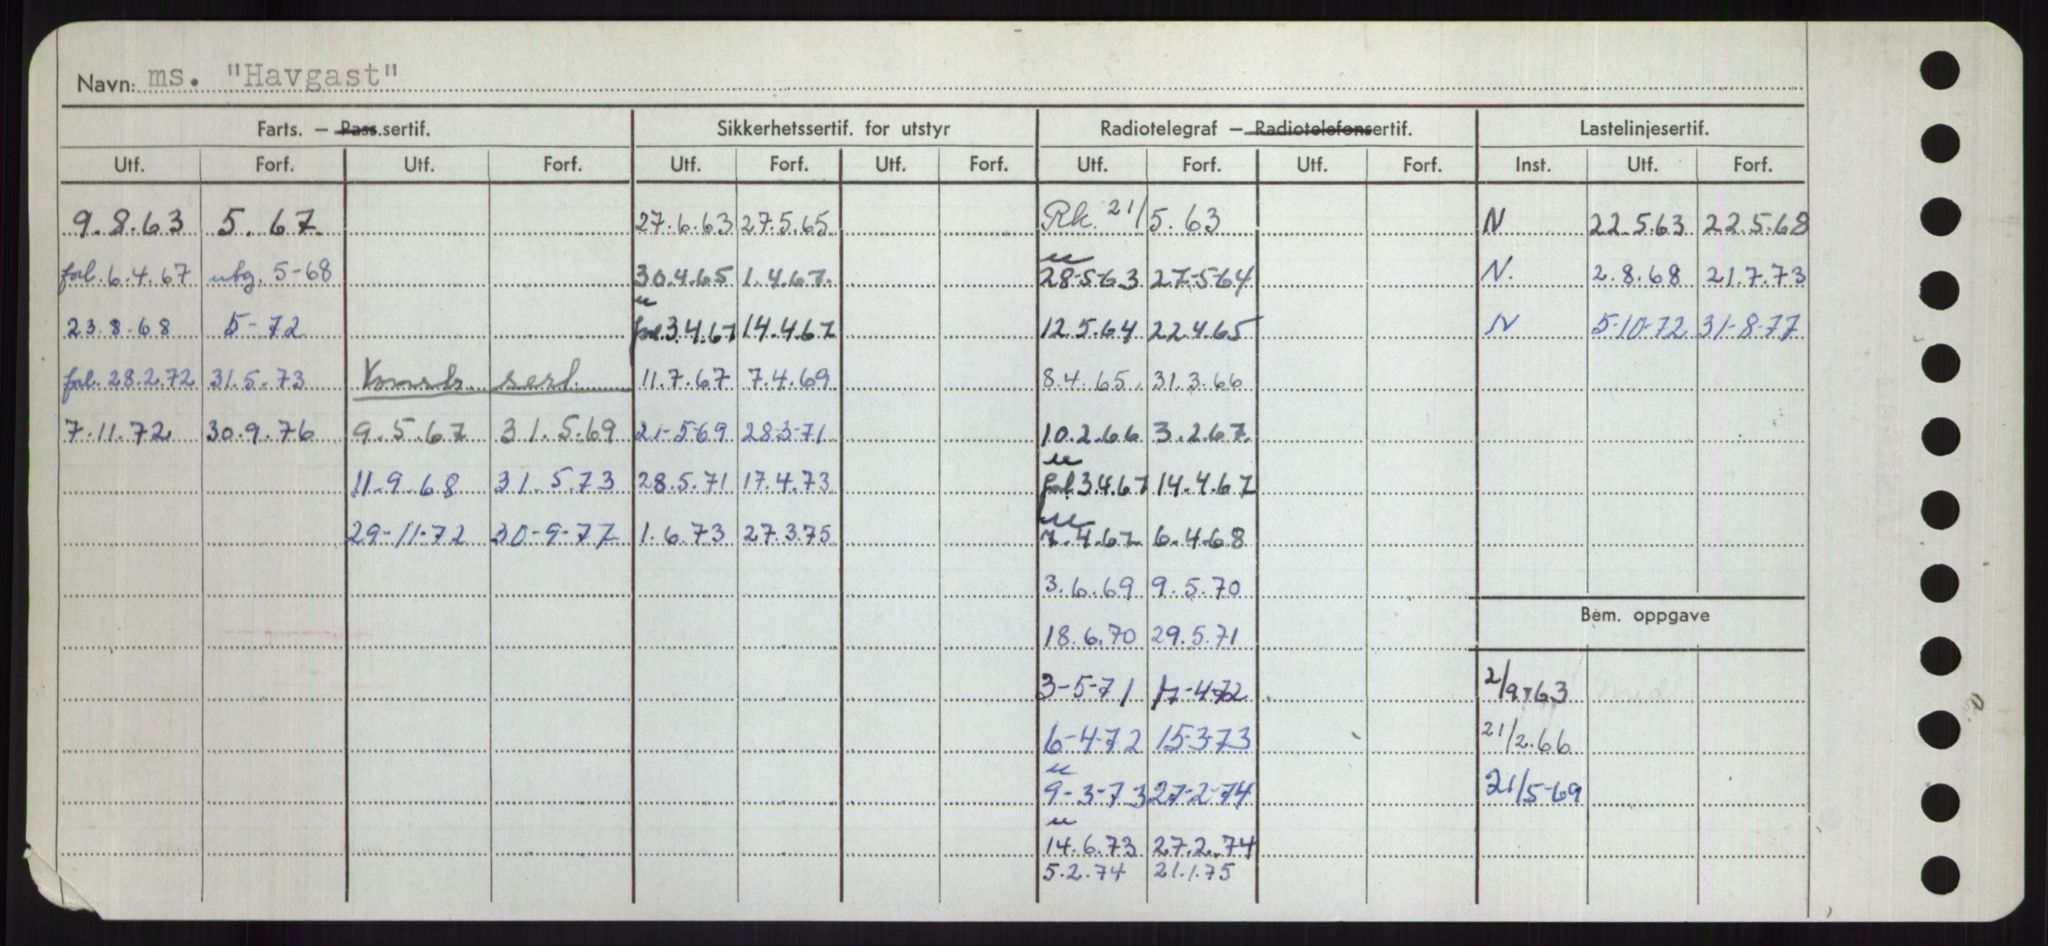 Navn: ms. "Havgast"
Farts. – Pass.sertif. Sikkerhetssertif. for utstyr Radiotelegraf – Radiotelefonsertif. Lastelinjesertif.
Utf. Forf. Utf. Forf. Utf. Forf. Utf. Forf. Utf. Forf. Utf. Forf. Inst. Utf. Forf.
9.8.63 5.67. 27.6.63 27.5.65 Rk. 21/5.63 N 22.5.63 22.5.68
forl. 6.4.67 utg. 5-68 30.4.65 1.4.67. u 28-5-63 27-5-64 N. 2.8.68 21.7.73
23.8.68 5-72 u forl 3.4.67 14.4.67 12.5.64 22.4.65 N 5-10-72 31-8-77
forl. 28.2.72 31.5.73 Konstr. sert. 11.7.67 7.4.69 8.4.65. 31.3.66
7.11.72 30.9.76 9.5.67 31.5.69 21-5-69 28-3-71 10.2.66 3.2.67.
11-9-68 31.5.73 28.5.71 17.4.73 u forl 3.4.67 14.4.67
29-11-72 30-9-77 1.6.73 27.3.75 u 7.4.67 6.4.68
3.6.69 9.5.70
18.6.70 29.5.71
Bem. oppgave
3-5-71 17-4-72 2/9.63
6-4-72 15-3-73 21/2.66
u 9-3-73 27-2-74 21/5-69
u 14.6.73 27.2.74
5.2.74 21.1.75